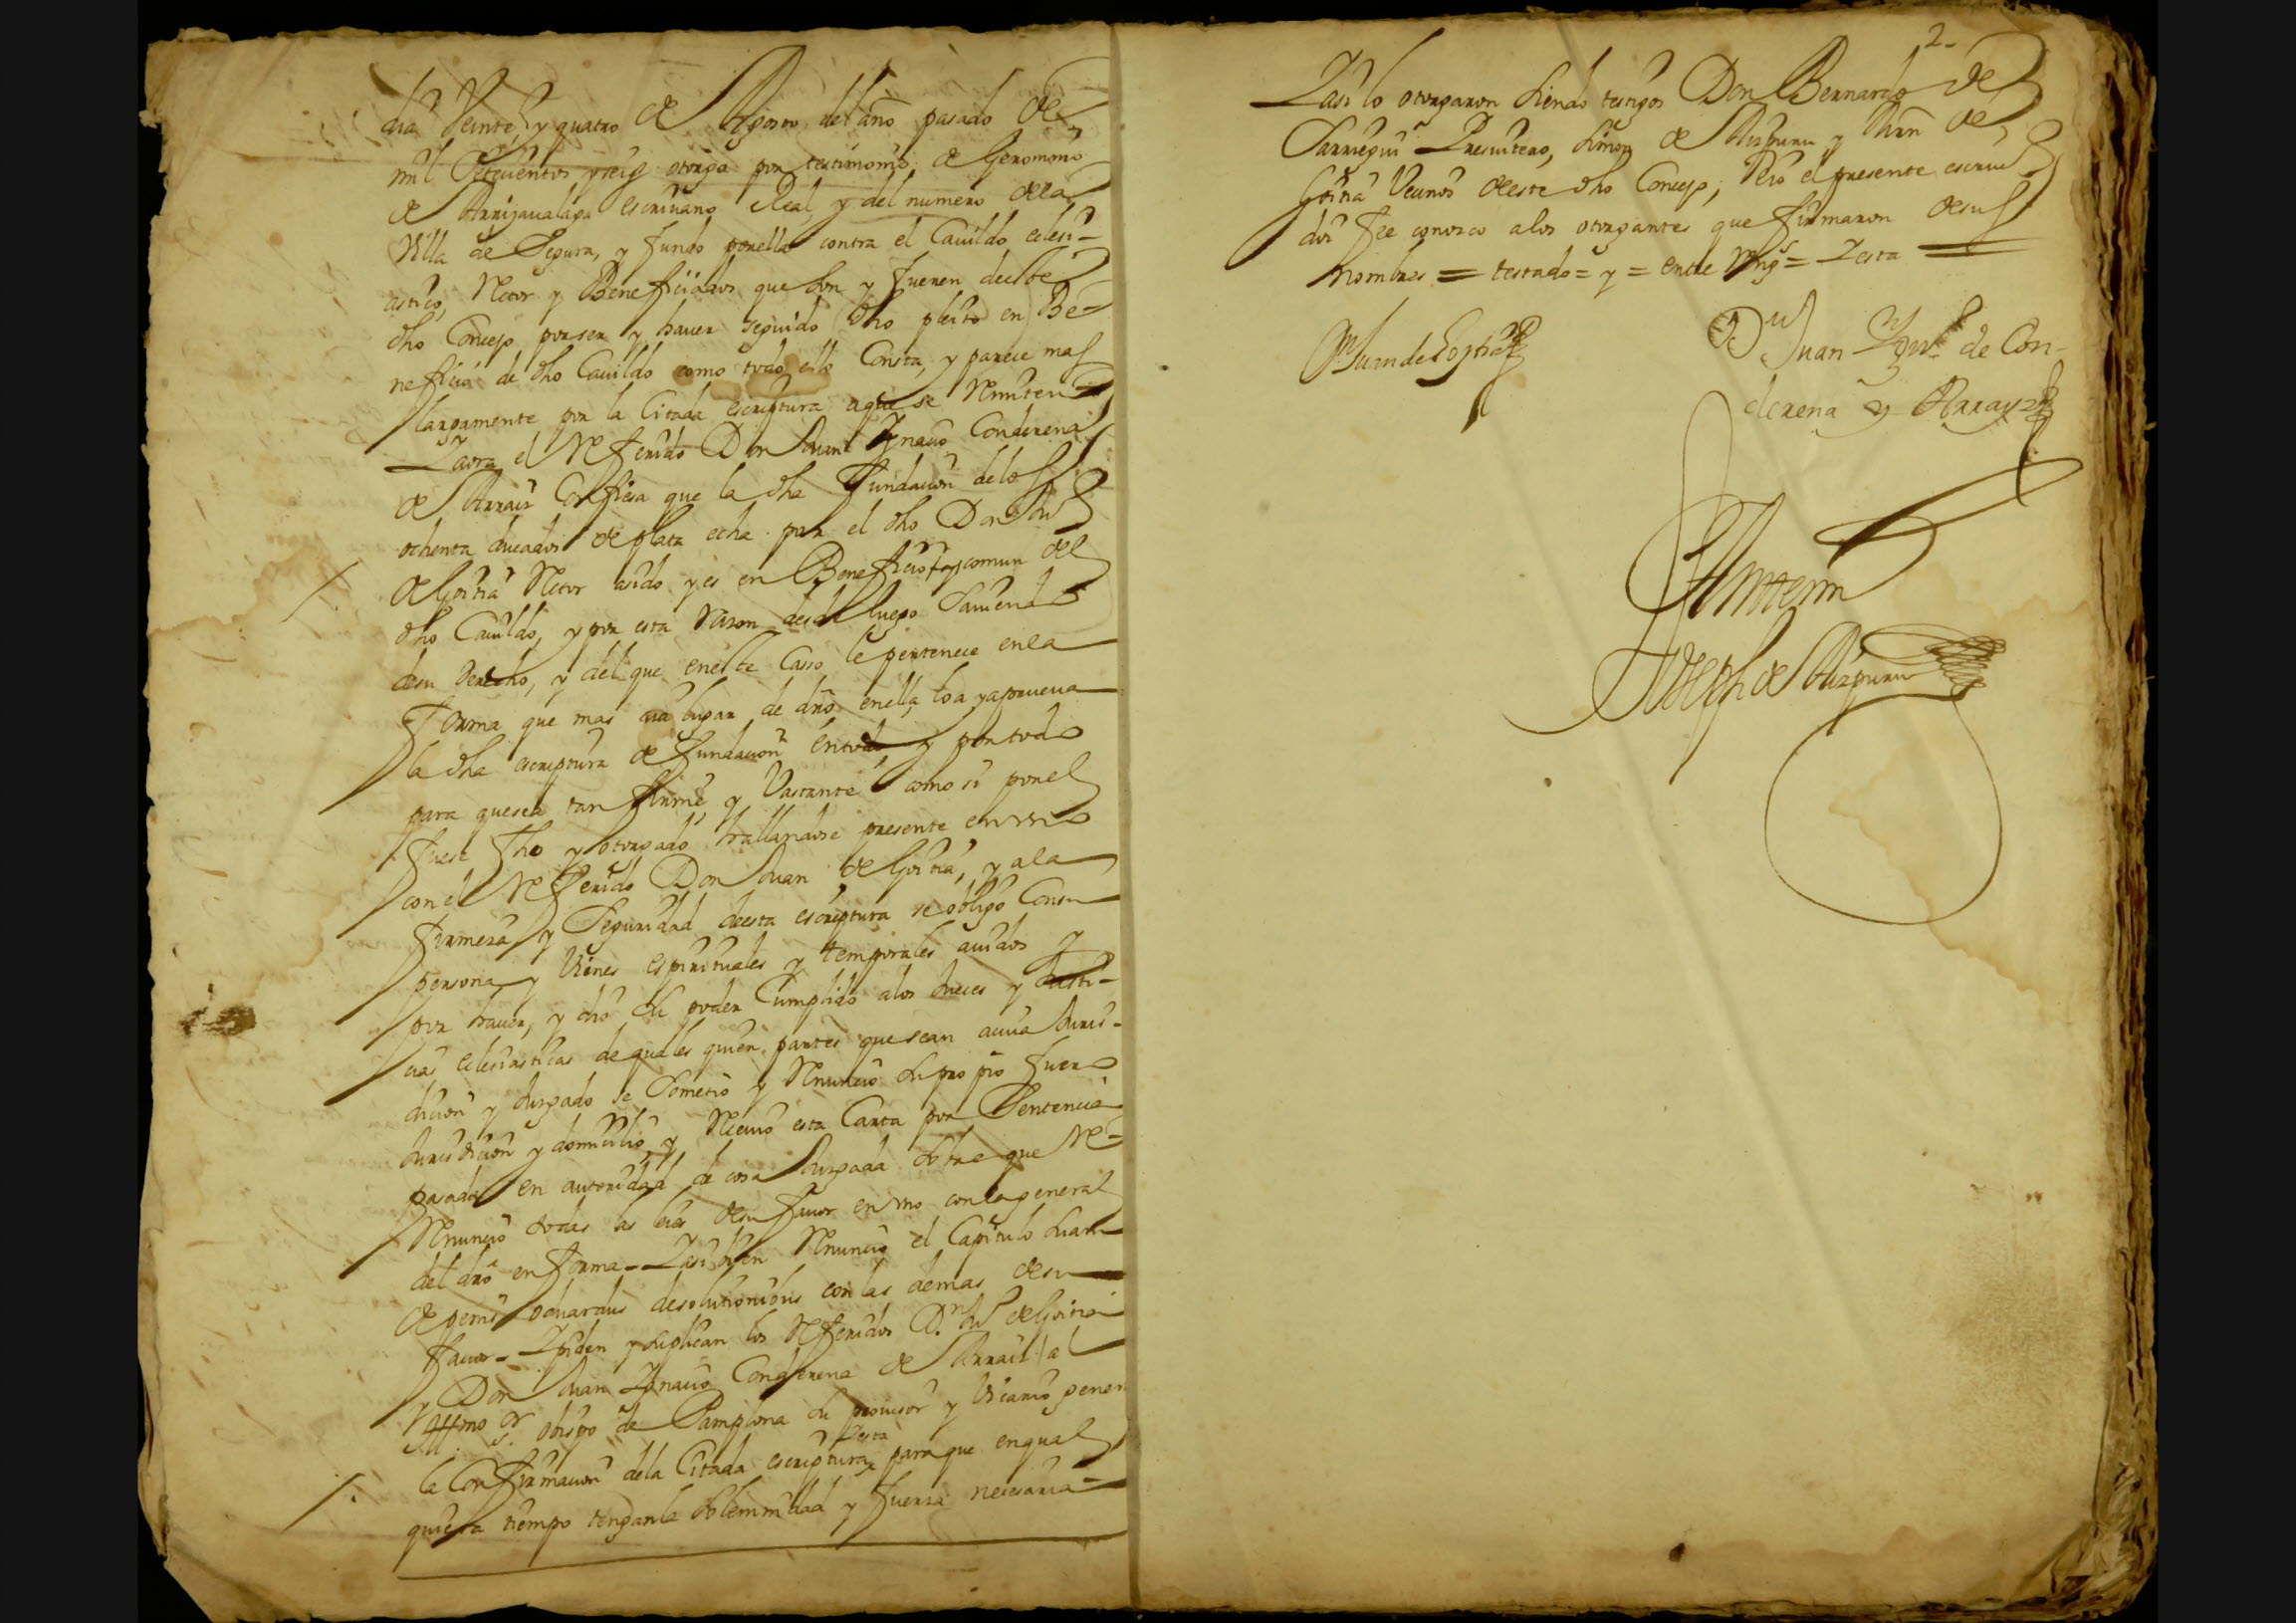 dia Veinte y quatro de Agosto del año pasado de
mil Setecientos y seis otorga por testimonio de Geronimo
de Arrizavalaga escriuano Real y del numero de la
Villa de Segura, y fundo por ella contra el Cauildo eclesi-
astico, Retor y Beneficiados que son y fueren deeste
dho Concejo por ser y hauer seguido dho pleito en Be-
neficio de dho Cauildo como todo ello Consta, y parece mas
largamente por la Citada escriptura aque se Remiten
Y aora el Referido Don Juan Ygnacio Conderena
de Arraiz Confiesa que la dha fundacion delos
ochenta ducados de plata echa por el dho Don Ju
de Goitia Retor asido y es en Beneficio y comun del
dho Cauildo, y por esta Razon desde luego Sauiendo
desu derecho, y del que eneste Casso le pertenece enla
forma que mas aia lugar de dro enella, loa yaprueua
la dha escriptura de fundacion entodo y portodo
para quesea tan firme y Vastante como si porel
fuese fho y otorgado hallandose presente en vno
con el Referido Don Juan de Goitia, y ala
firmeza y Seguridad deesta escriptura se obligo Consu
persona y Vienes espirituales y temporales auidos y
por hauer, y dio su poder Cumplido alos Jueces y Justi-
cias eclesiasticas de quales quier partes quesean acuia Juris-
dicion y Juzgado se Sometio y Renuncio supropio fuero
Jurisdicion y domicilio, y Reciuio esta Carta por Sentencia
pasada en autoridad de cosa Juzgada sobre que Re-
Renuncio todas las leies desu fauor en vno conlageneral
del dro en forma - Y asi bien Renuncio el Capitulo Suam
de penis Oduardus desolutionibus con las demas desu
fauor - Y piden y suplican los Referidos Dn Ju de Goitia
y Don Juan Ygnacio Conderena de Arraiz al
Illmo Sr obispo de Pamplona su prouisor y Vicario gener
Y esta
la Confirmacion dela Citada escriptura para que enqual
quiera tiempo tenganla Solemnidad y fuerza necesaria =
2-
Y asi lo otorgaron siendo testigos Don Bernardo de
Jauregui Presuitero, Simon de Aizpuru y Juan de
Goitia Vecinos deeste dho Concejo, Yo el presente escriu
doi fee conozco alos otorgantes que firmaron desus
nombres = testado = y = entre Rengs = Y esta
Juan de Goitia
Dn Juan Ygno de Con-
derena y Arrayz
Ante mi
Joseph de Aizpuru